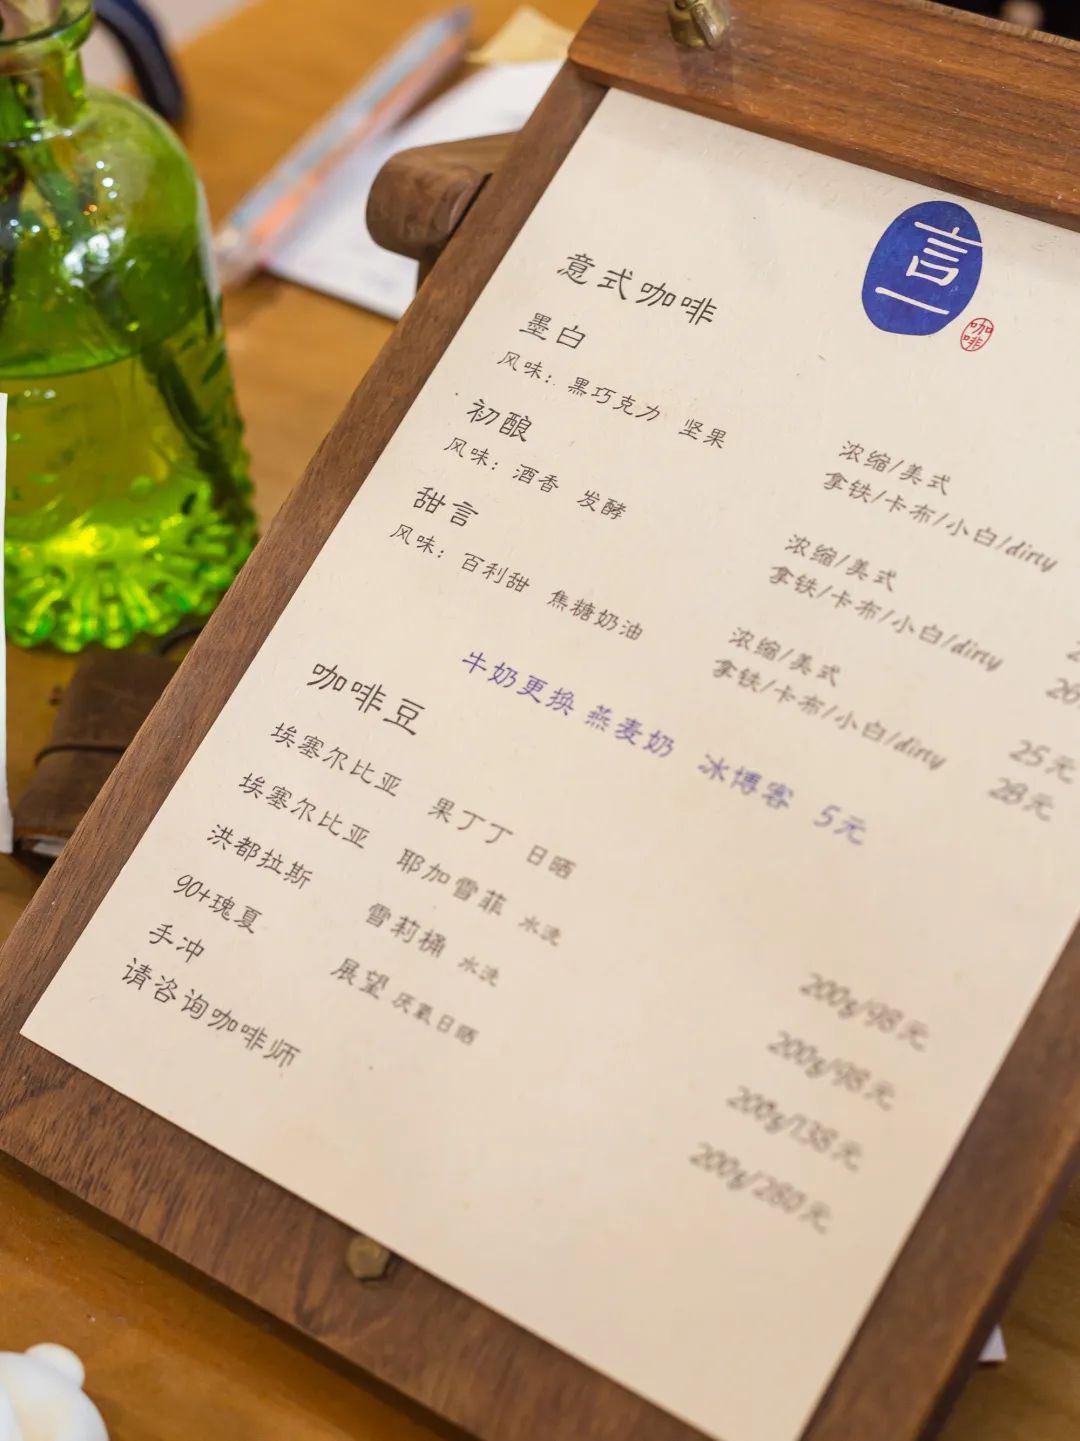 言一
咖啡
意式咖啡
墨白
风味：黑巧克力 坚果
浓缩/美式
拿铁/卡布/小白/dirty
初酿
风味：酒香 发酵
浓缩/美式
拿铁/卡布/小白/dirty
甜言
风味：百利甜 焦糖奶油
浓缩/美式 25元
拿铁/卡布/小白/dirty 28元
牛奶更换 燕麦奶 冰博客 5元
咖啡豆
埃塞尔比亚 果丁丁 日晒 200g/98元
埃塞尔比亚 耶加雪菲 水洗 200g/98元
洪都拉斯 雪莉桶 水洗 200g/138元
90+瑰夏 展望 厌氧日晒 200g/280元
手冲
请咨询咖啡师